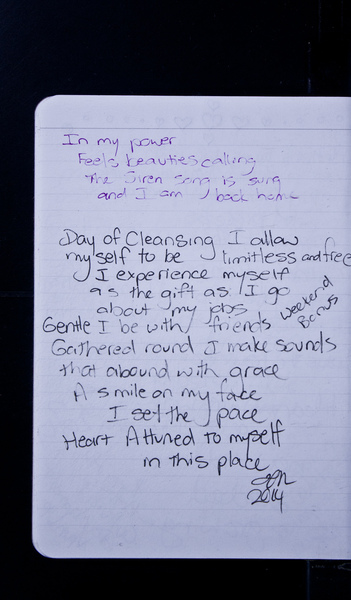 In my power
Feels beauties calling
The Siren song is sung
and I am back home
Day of Cleansing I allow
myself to be limitless and free
I experience myself
as the gift as I go
about my jobs
weekend
Bonus
Gentle I be with friends
Gathered round I make sounds
that abound with grace
A smile on my face
I set the pace
Heart Attuned to myself
in this place
2014